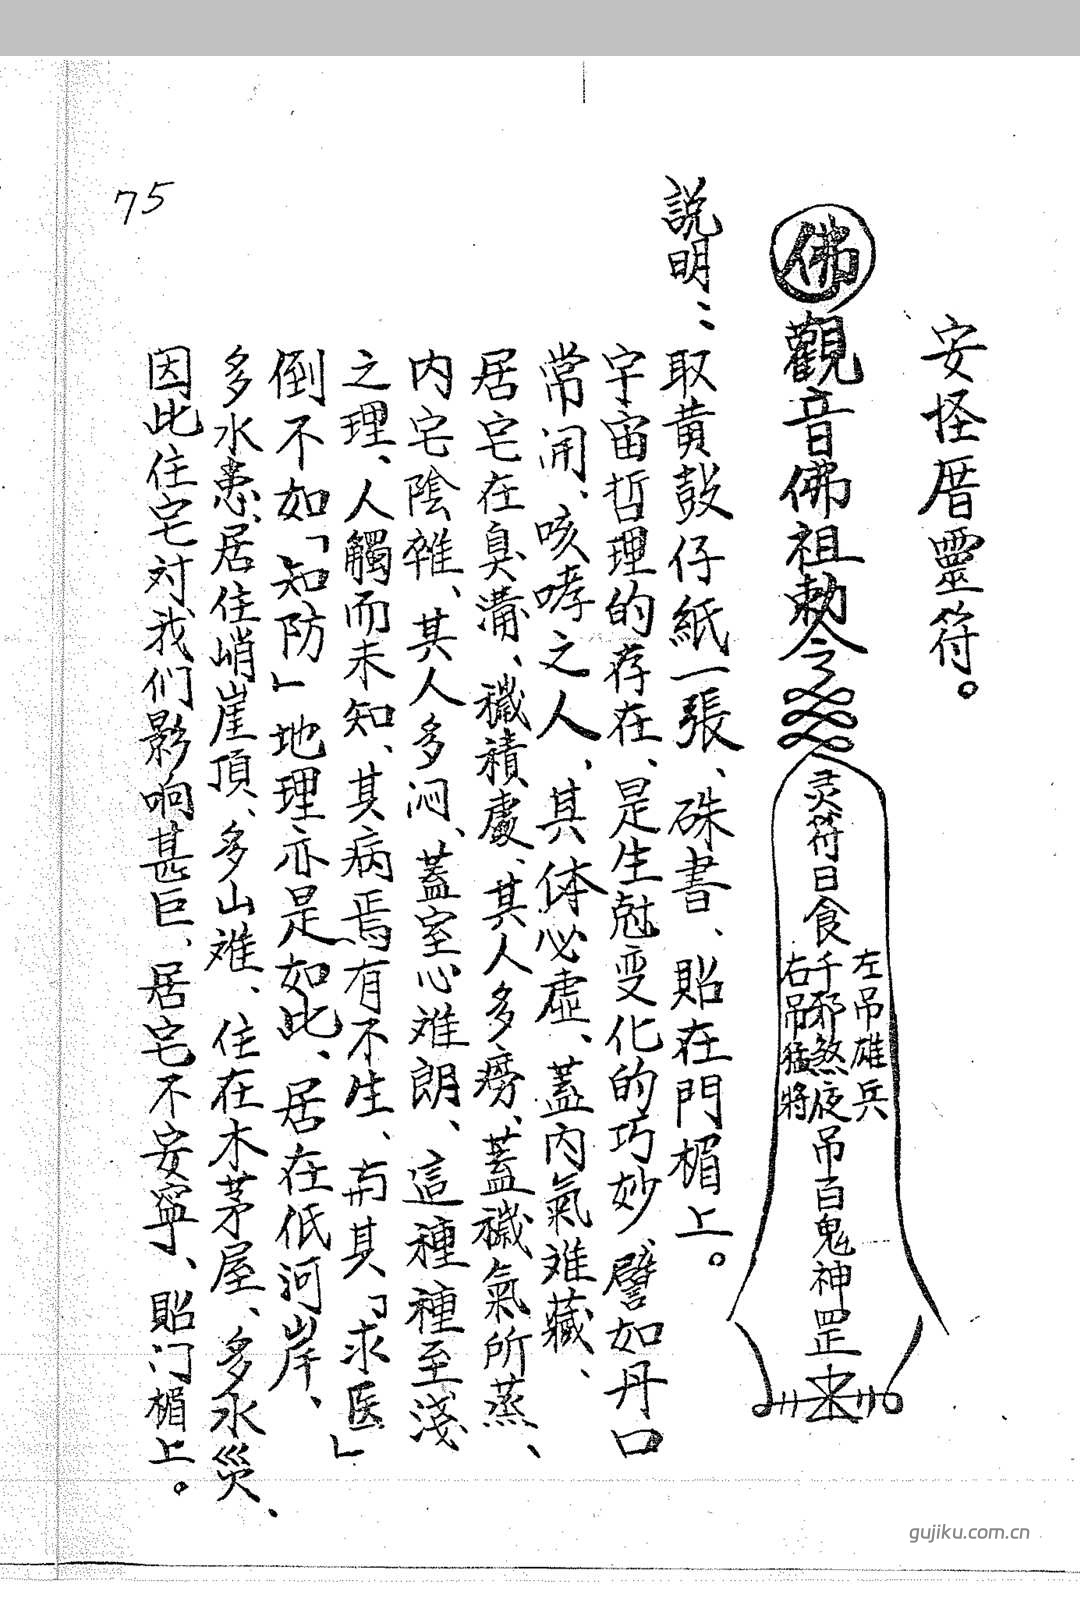 安怪厝靈符。
佛 觀音佛祖勅令
灵符日食千邪煞夜吊百鬼神罡
左吊雄兵
右吊猛將
説明：取黄殼仔紙一張、硃書、貼在門楣上。
宇宙哲理的存在、是生尅变化的巧妙、譬如丹口
常開、咳哮之人、其体必虛、蓋內氣难藏、
居宅在臭溝、穢積處、其人多癆、蓋穢氣所蒸、
内宅陰雜、其人多闷、蓋室心难朗、這種種至淺
之理、人觸而未知、其病焉有不生、而其「求医」
倒不如「知防」地理亦是如此、居在低河岸、
多水患、居住峭崖頂、多山难、住在木茅屋、多火災、
因此住宅対我们影响甚巨、居宅不安寧、貼门楣上。
75
gujiku.com.cn